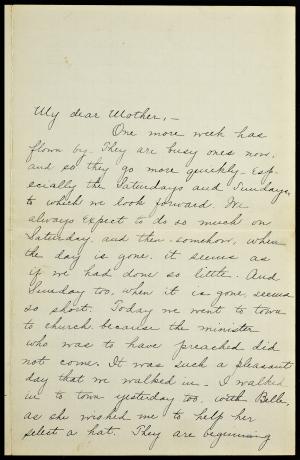 My dear Mother,-
One more week has
flown by. They are busy ones now,
and so they go more quickly - Esp-
ecially the Saturdays and Sundays,
to which we look forward. We
always expect to do so much on
Saturday, and then - somehow, when
the day is gone, it seems as
if we had done so little. And
Sunday too, when it is gone, seems
so short. Today we went to town
to church, because the minister
who was to have preached did
not come. It was such a pleasant
day that we walked in - I walked
in to town yesterday too, with Belle,
as she wished me to help her
select a hat. They are beginning